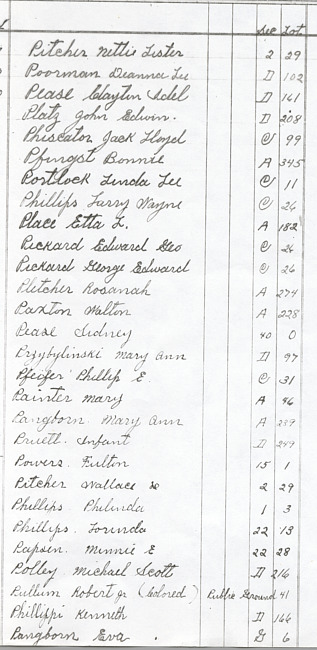 Sec Lot
Pitcher Nettie Lister 2 29
Poorman Deanna Lee D 102
Pease Clayton Adel D 161
Platz John Edwin. D 208
Phiscator Jack Lloyd C 99
Pfingst Bonnie A 345
Portlock Linda Lee C 11
Phillips Larry Wayne C 26
Place Etta L. A 182
Rickard Edward Geo C 26
Rickard George Edward C 26
Pletcher Rosanah A 274
Paxton Walton A 228
Pease Sidney 40 0
Przybylinski Mary Ann D 97
Pfeifer Phillip E. C 31
Painter Mary A 46
Pangborn. Mary Ann A 299
Pruett. Infant D 249
Powers. Fulton 15 1
Pitcher Wallace 2 29
Phillips Philinda 1 3
Phillips. Lorinda 22 13
Papsen. Minnie E 22 28
Polley Michael Scott D 216
Pullum Robert Jr (Colored) Public Ground 41
Phillippi Kenneth D 166
Pangborn Eva. G 6